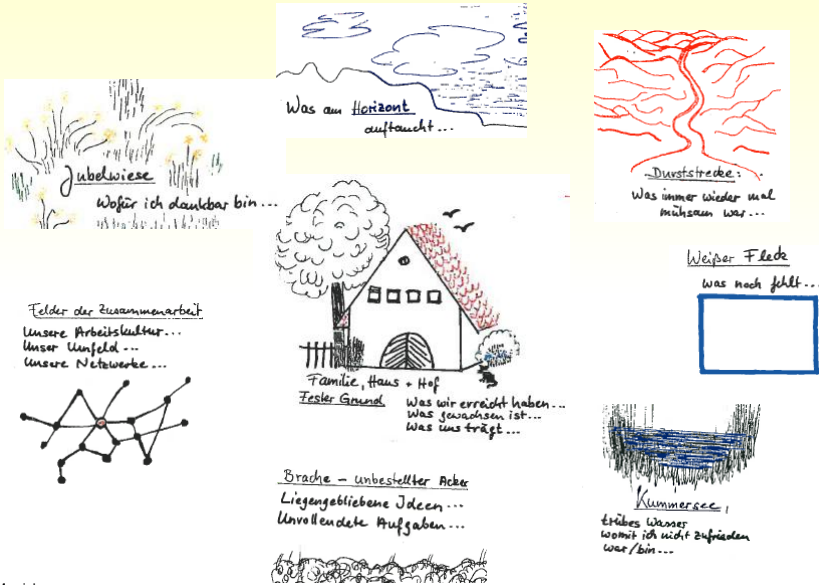 Was am Horizont
auftaucht...
Jubelwiese
Wofür ich dankbar bin...
Durststrecke:
Was immer wieder mal
mühsam war...
Weißer Fleck
Was noch fehlt...
Felder der Zusammenarbeit
Unsere Arbeitskultur...
Unser Umfeld...
Unsere Netzwerke...
Familie, Haus + Hof
Fester Grund
Was wir erreicht haben...
Was gewachsen ist...
Was uns trägt...
Brache – unbestellter Acker
Liegengebliebene Ideen...
Unvollendete Aufgaben...
Kummersee,
trübes Wasser
womit ich nicht zufrieden
war/bin...